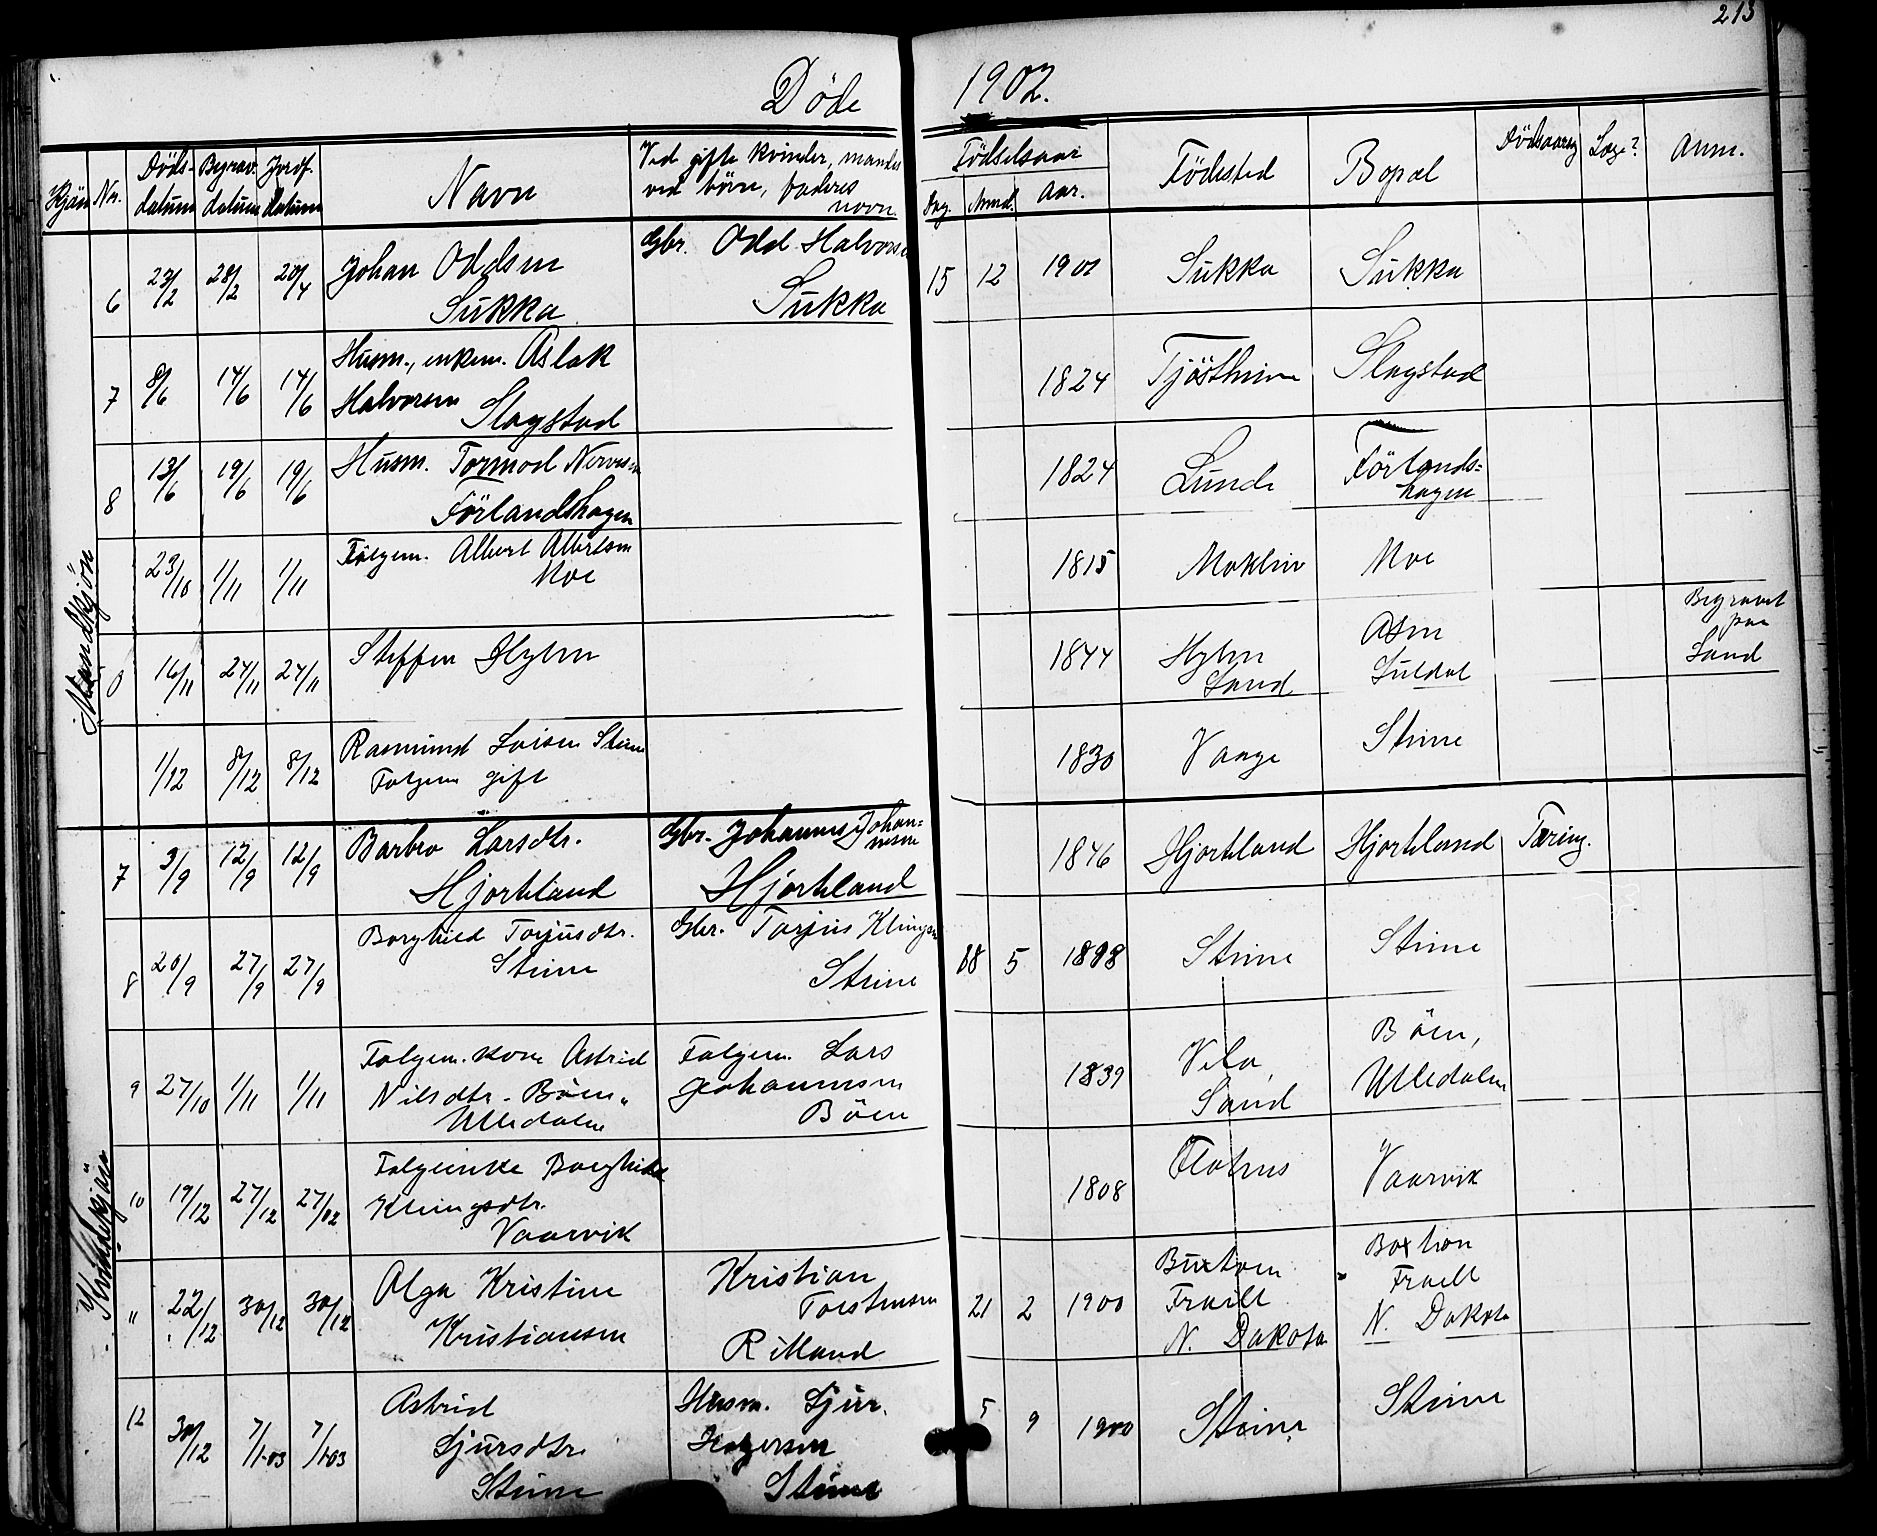 213
Døde 1902.
Kjön Nr. Døds-datum Begrav. datum Jordf. datum Navn Ved gifte kvinder, mandes ved børn, faderes navn. Fødselsaar Dag. Maned. Aar. Fødested Bopæl Dødsaarsag Læge? Anm.
Mandkjön
6 23/2 28/2 20/4 Johan Oddsen Gbr. Odd Halvorsen 15 12 1901 Sukka Sukka
Sukka Sukka
7 8/6 14/6 14/6 Husm., enkem. Aslak 1824 Tjöstheim Slagstad
Halvorsen Slagstad
8 13/6 19/6 19/6 Husm. Tormod 1824 Lunde Förlands=
Förlandshagen hagen
23/10 1/11 1/11 Folgem. Albert Albertsen 1815 Moklev Moe
Moe
0 16/11 24/11 24/11 Steffen Hylen 1844 Hylen Aasen Begravet
Sand Suldal paa
Sand
1/12 8/12 8/12 Rasmund Loisen Steine 1830 Vaage Steine
Folgem gift
Kvindekjön
7 3/9 12/9 12/9 Barbro Larsdtr. Gbr. Johannes Johan=
nesen 1846 Hjorteland Hjorteland Tæring.
Hjorteland Hjorteland
8 20/9 27/9 27/9 Borghild Torjusdtr. Gbr. Torjus Klingsen 18 5 1898 Steine Steine
Steine Steine
9 27/10 1/11 1/11 Folgem. kone Astrid Folgem. Lars 1839 Vela, Böen,
Nilsdtr. Böen, Johannesen Sand Ulledalen
Ulledalen Böen
10 19/12 27/12 27/12 Folgeenke Borghild 1808 Flotnes Vaarvik
Klingsdtr.
Vaarvik
" 22/12 30/12 30/12 Olga Kristine Kristian 21 2 1900 Buxton Boxton
Kristiansen Torstensen Traill Traill
Rilland N. Dakota N. Dakota
12 30/12 7/1-03 7/1-03 Astrid Husm. Sjur. 5 9 1900 Steine Steine
Sjursdtr. Holgersen
Steine Steine